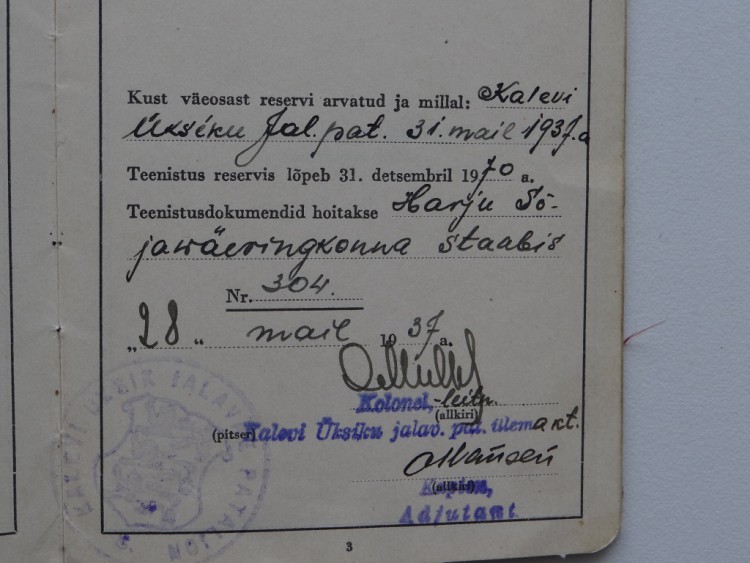 Kust väeosast reservi arvatud ja millal: Kalevi
Üksiku Jal. pat. 31. mail 1937. a
Teenistus reservis lõpeb 31. detsembril 1970 a.
Teenistusdokumendid hoitakse Harju Sõ-
jawäeringkonna staabis
Nr. 304.
"28" mail 1937 a.
Kolonel,-leitn.
(allkiri)
(pitser) Kalevi Üksiku jalav. pat. ülem a kt.
(allkiri)
Kapten,
Adjutant
KALEVI ÜKSIK JALAVÄE PATALJON
3